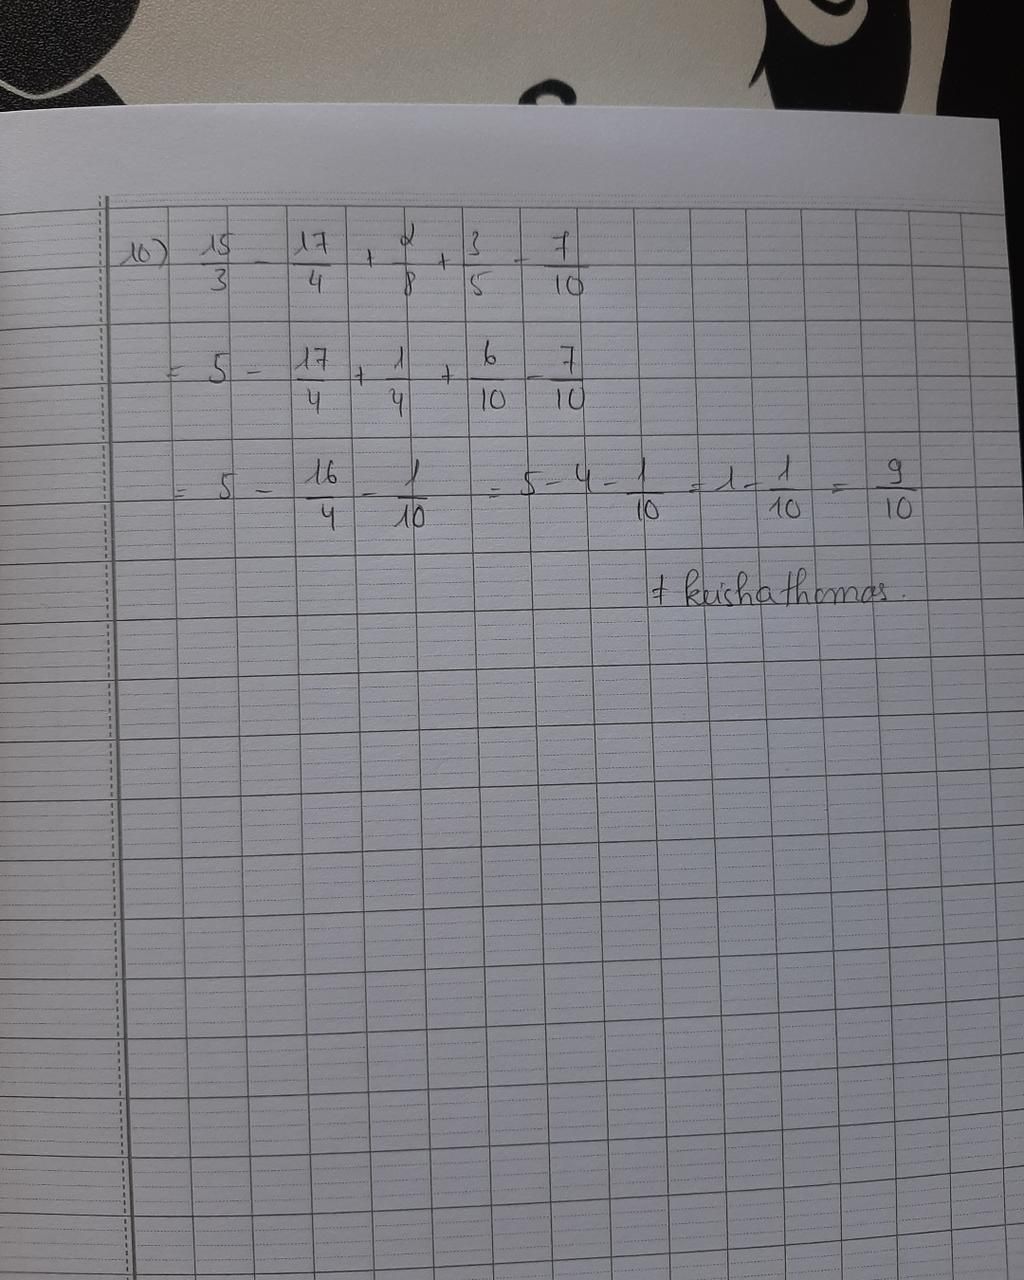 10) 15/3 - 17/4 + 2/8 + 3/5 - 7/10
= 5 - 17/4 + 1/4 + 6/10 - 7/10
= 5 - 16/4 - 1/10 = 5 - 4 - 1/10 = 1 - 1/10 = 9/10
≠ keishathomas.